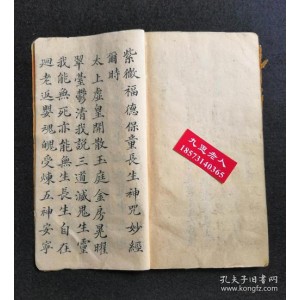 紫微福德保童長生神咒妙經
爾時
太上虛皇開散玉庭金房晃曜
翠臺鬱清我說三道滅鬼生靈
我能無死亦能無生長生自在
迴老返嬰魂魄受煉五神安寧
九吳老人
18573140365
孔夫子旧书网